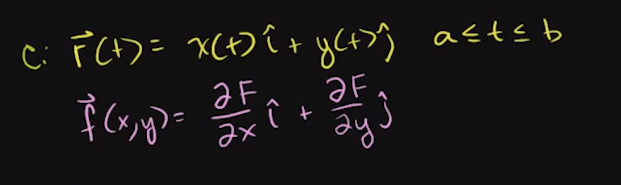 C: r⃗(t) = x(t)î + y(t)ĵ a ≤ t ≤ b
f⃗(x,y) = ∂F/∂x î + ∂F/∂y ĵ